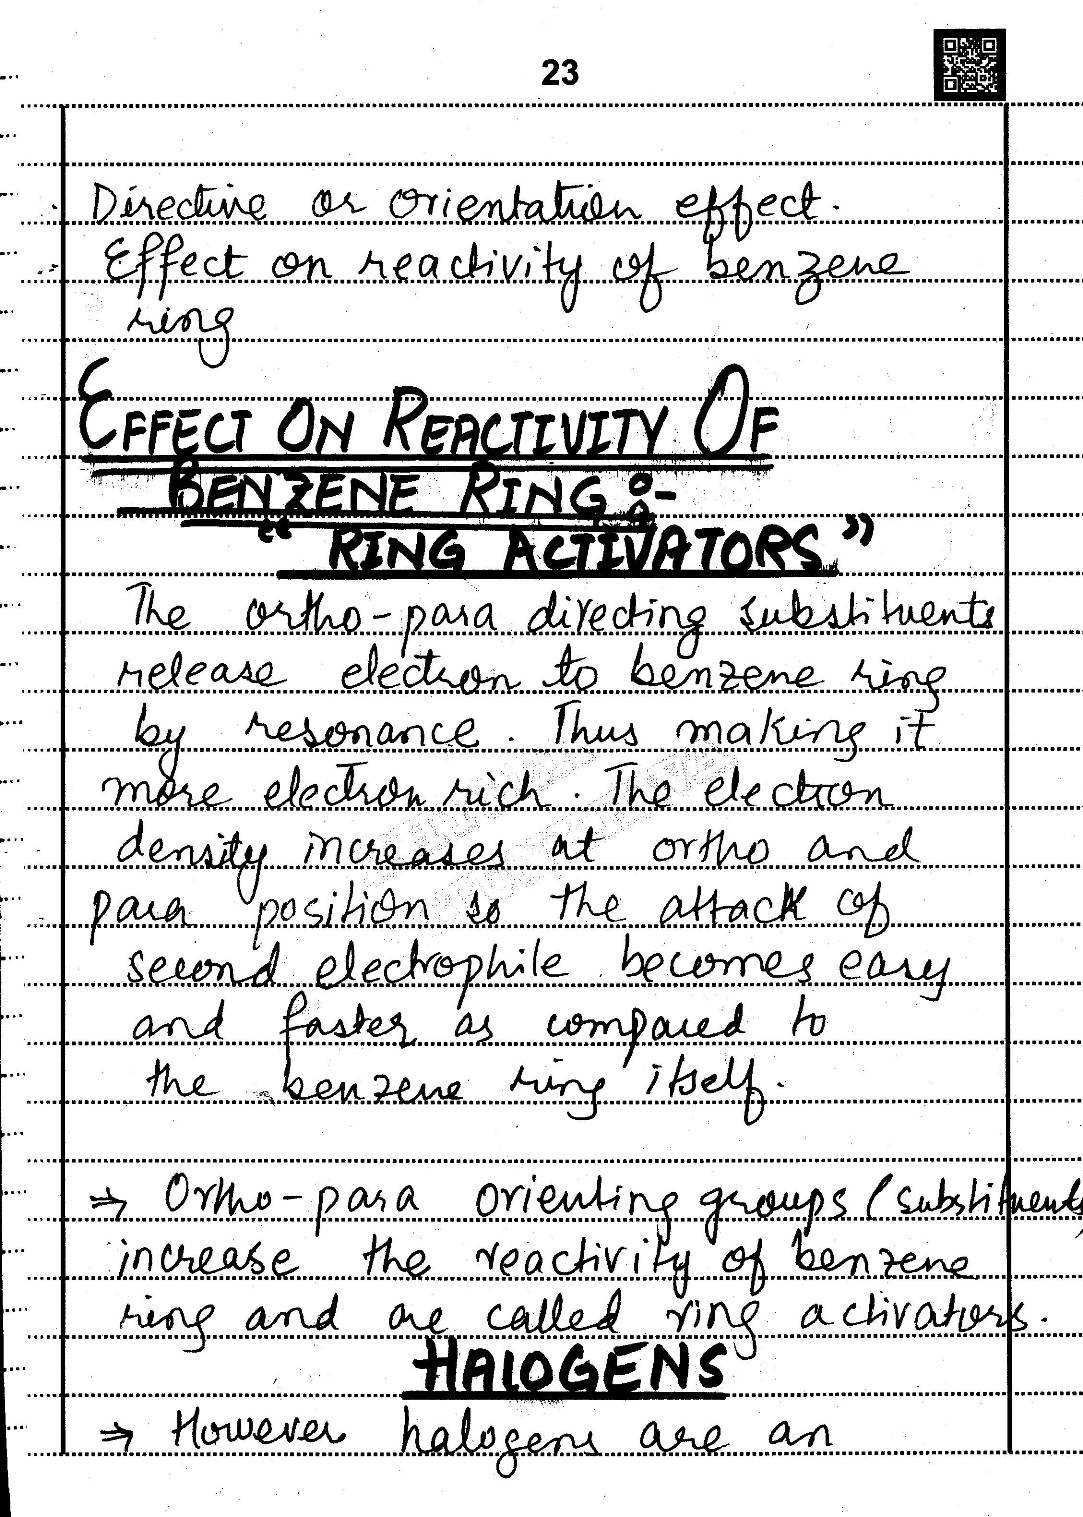 23
Directive or orientation effect.
Effect on reactivity of benzene
ring
EFFECT ON REACTIVITY OF
BENZENE RING :-
"RING ACTIVATORS"
The ortho-para directing substituents
release electron to benzene ring
by resonance. Thus making it
more electron rich. The electron
density increases at ortho and
para position so the attack of
second electrophile becomes easy
and faster as compared to
the benzene ring itself.
⇒ Ortho-para orienting groups (substituents)
increase the reactivity of benzene
ring and are called ring activators.
HALOGENS
⇒ However halogens are an